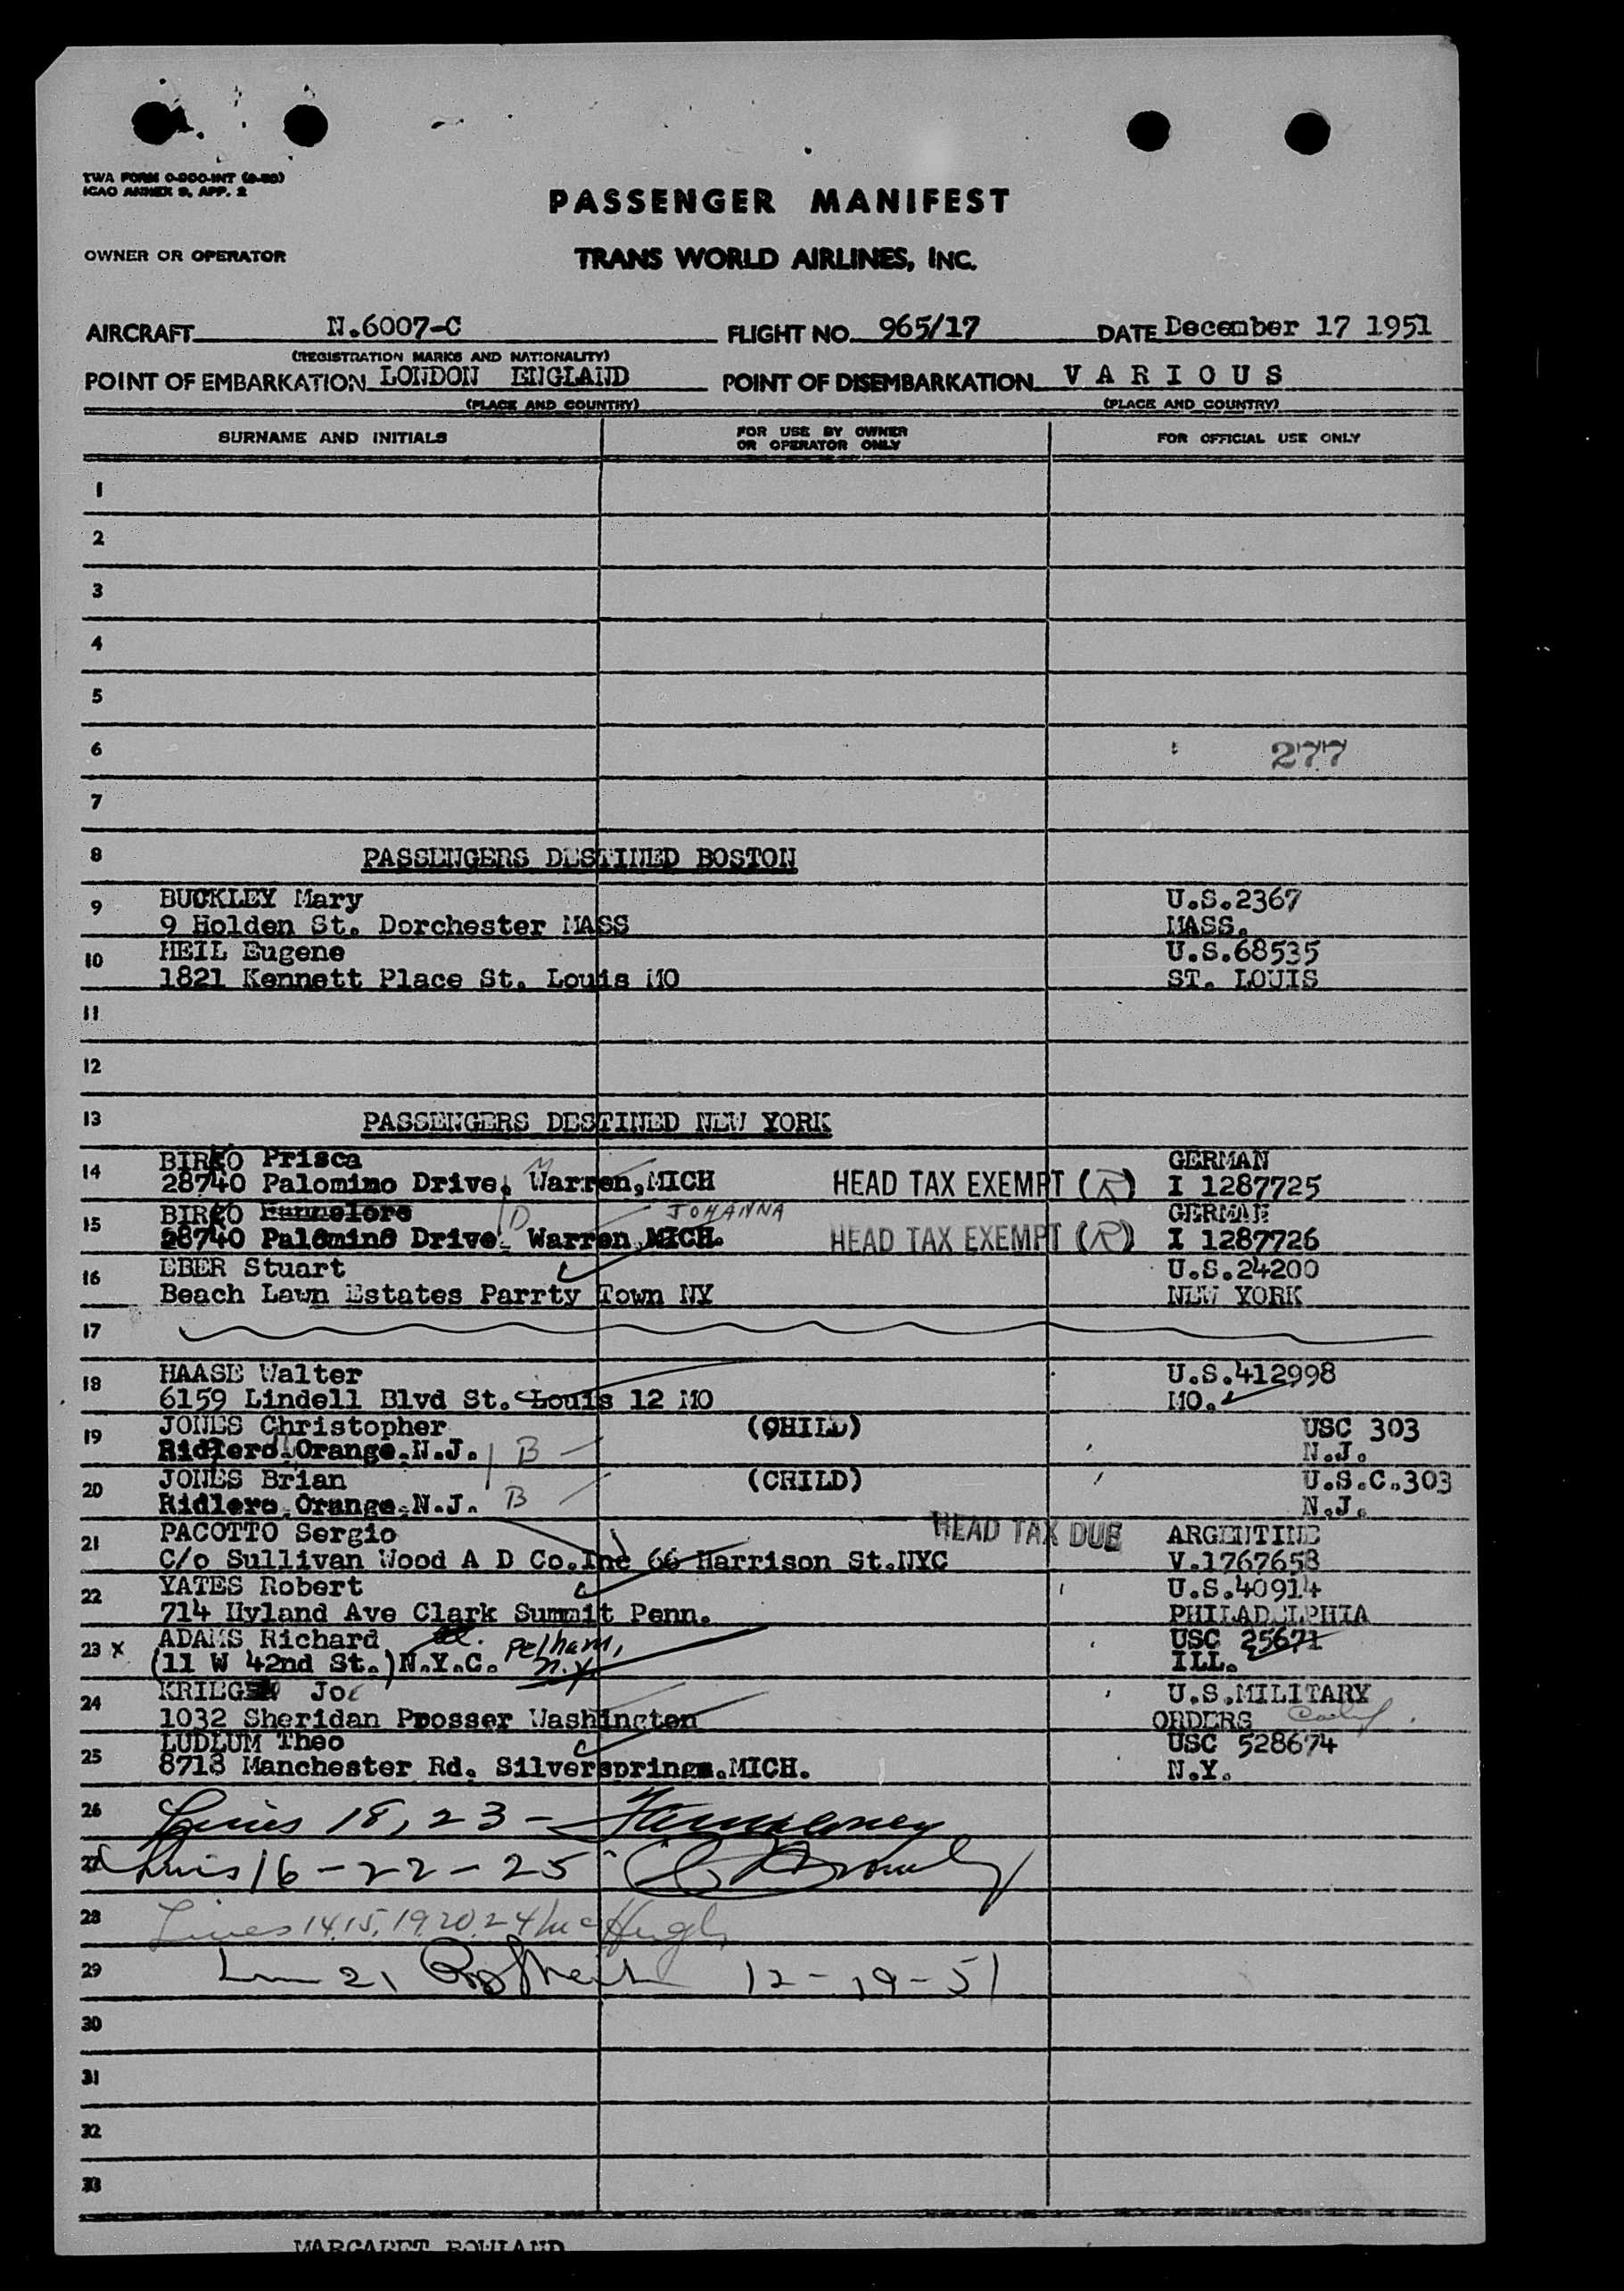 TWA FORM O-900-INT (9-50)
ICAO ANNEX 9, APP. 2
PASSENGER MANIFEST
OWNER OR OPERATOR
TRANS WORLD AIRLINES, INC.
AIRCRAFT N.6007-C FLIGHT NO. 965/17 DATE December 17 1951
(REGISTRATION MARKS AND NATIONALITY)
POINT OF EMBARKATION LONDON ENGLAND POINT OF DISEMBARKATION VARIOUS
(PLACE AND COUNTRY) (PLACE AND COUNTRY)
SURNAME AND INITIALS FOR USE BY OWNER OR OPERATOR ONLY FOR OFFICIAL USE ONLY
1
2
3
4
5
6 277
7
8 PASSENGERS DESTINED BOSTON
9 BUCKLEY Mary U.S.2367
9 Holden St. Dorchester MASS MASS.
10 HEIL Eugene U.S.68535
1821 Kennett Place St. Louis MO ST. LOUIS
11
12
13 PASSENGERS DESTINED NEW YORK
14 Prisca GERMAN
28740 Palomino Drive, Warren,MICH HEAD TAX EXEMPT (R) I 1287725
15 JOHANNA GERMAN
28740 Palomino Drive. Warren,MICH. HEAD TAX EXEMPT (R) I 1287726
16 EBER Stuart U.S.24200
Beach Lawn Estates Parrty Town NY NEW YORK
17
18 HAASE Walter U.S.412998
6159 Lindell Blvd St. Louis 12 MO MO.
19 JONES Christopher (CHILD) USC 303
Orange.N.J. B N.J.
20 JONES Brian (CHILD) U.S.C.303
Orange.N.J. B N.J.
21 PACOTTO Sergio HEAD TAX DUE ARGENTINE
C/o Sullivan Wood A D Co.Inc 66 Harrison St.NYC V.1767658
22 YATES Robert U.S.40914
714 Hyland Ave Clark Summit Penn. PHILADELPHIA
23 X ADAMS Richard Pelham, USC 25671
(11 W 42nd St.)N.Y.C. N.Y. ILL.
24 Joe U.S.MILITARY
1032 Sheridan Prosser Washington ORDERS Calif.
25 LUDLUM Theo USC 528674
8713 Manchester Rd. Silversprings.MICH. N.Y.
26 Lines 18, 23 -
27 Lines 16 - 22 - 25
28 Lines 14,15,19,20,24 McHugh
29 Line 21 12-19-51
30
31
32
33
MARGARET ROWLAND